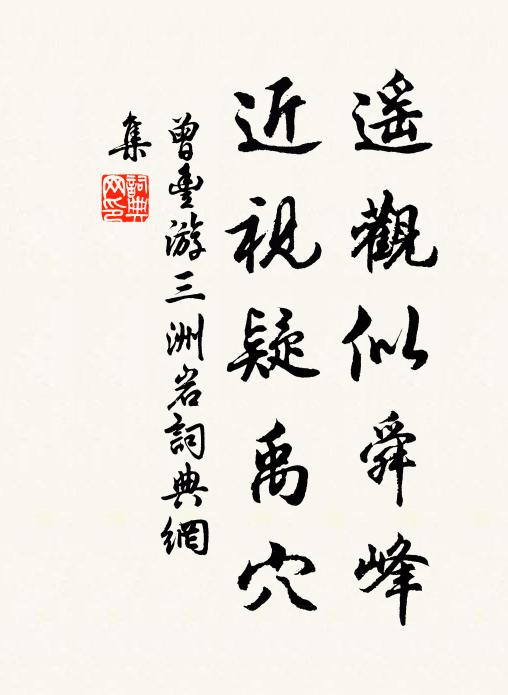 遥觀似舜峰
近視疑禹穴
曾豐游三洲岩詞典網
集
詞典网印